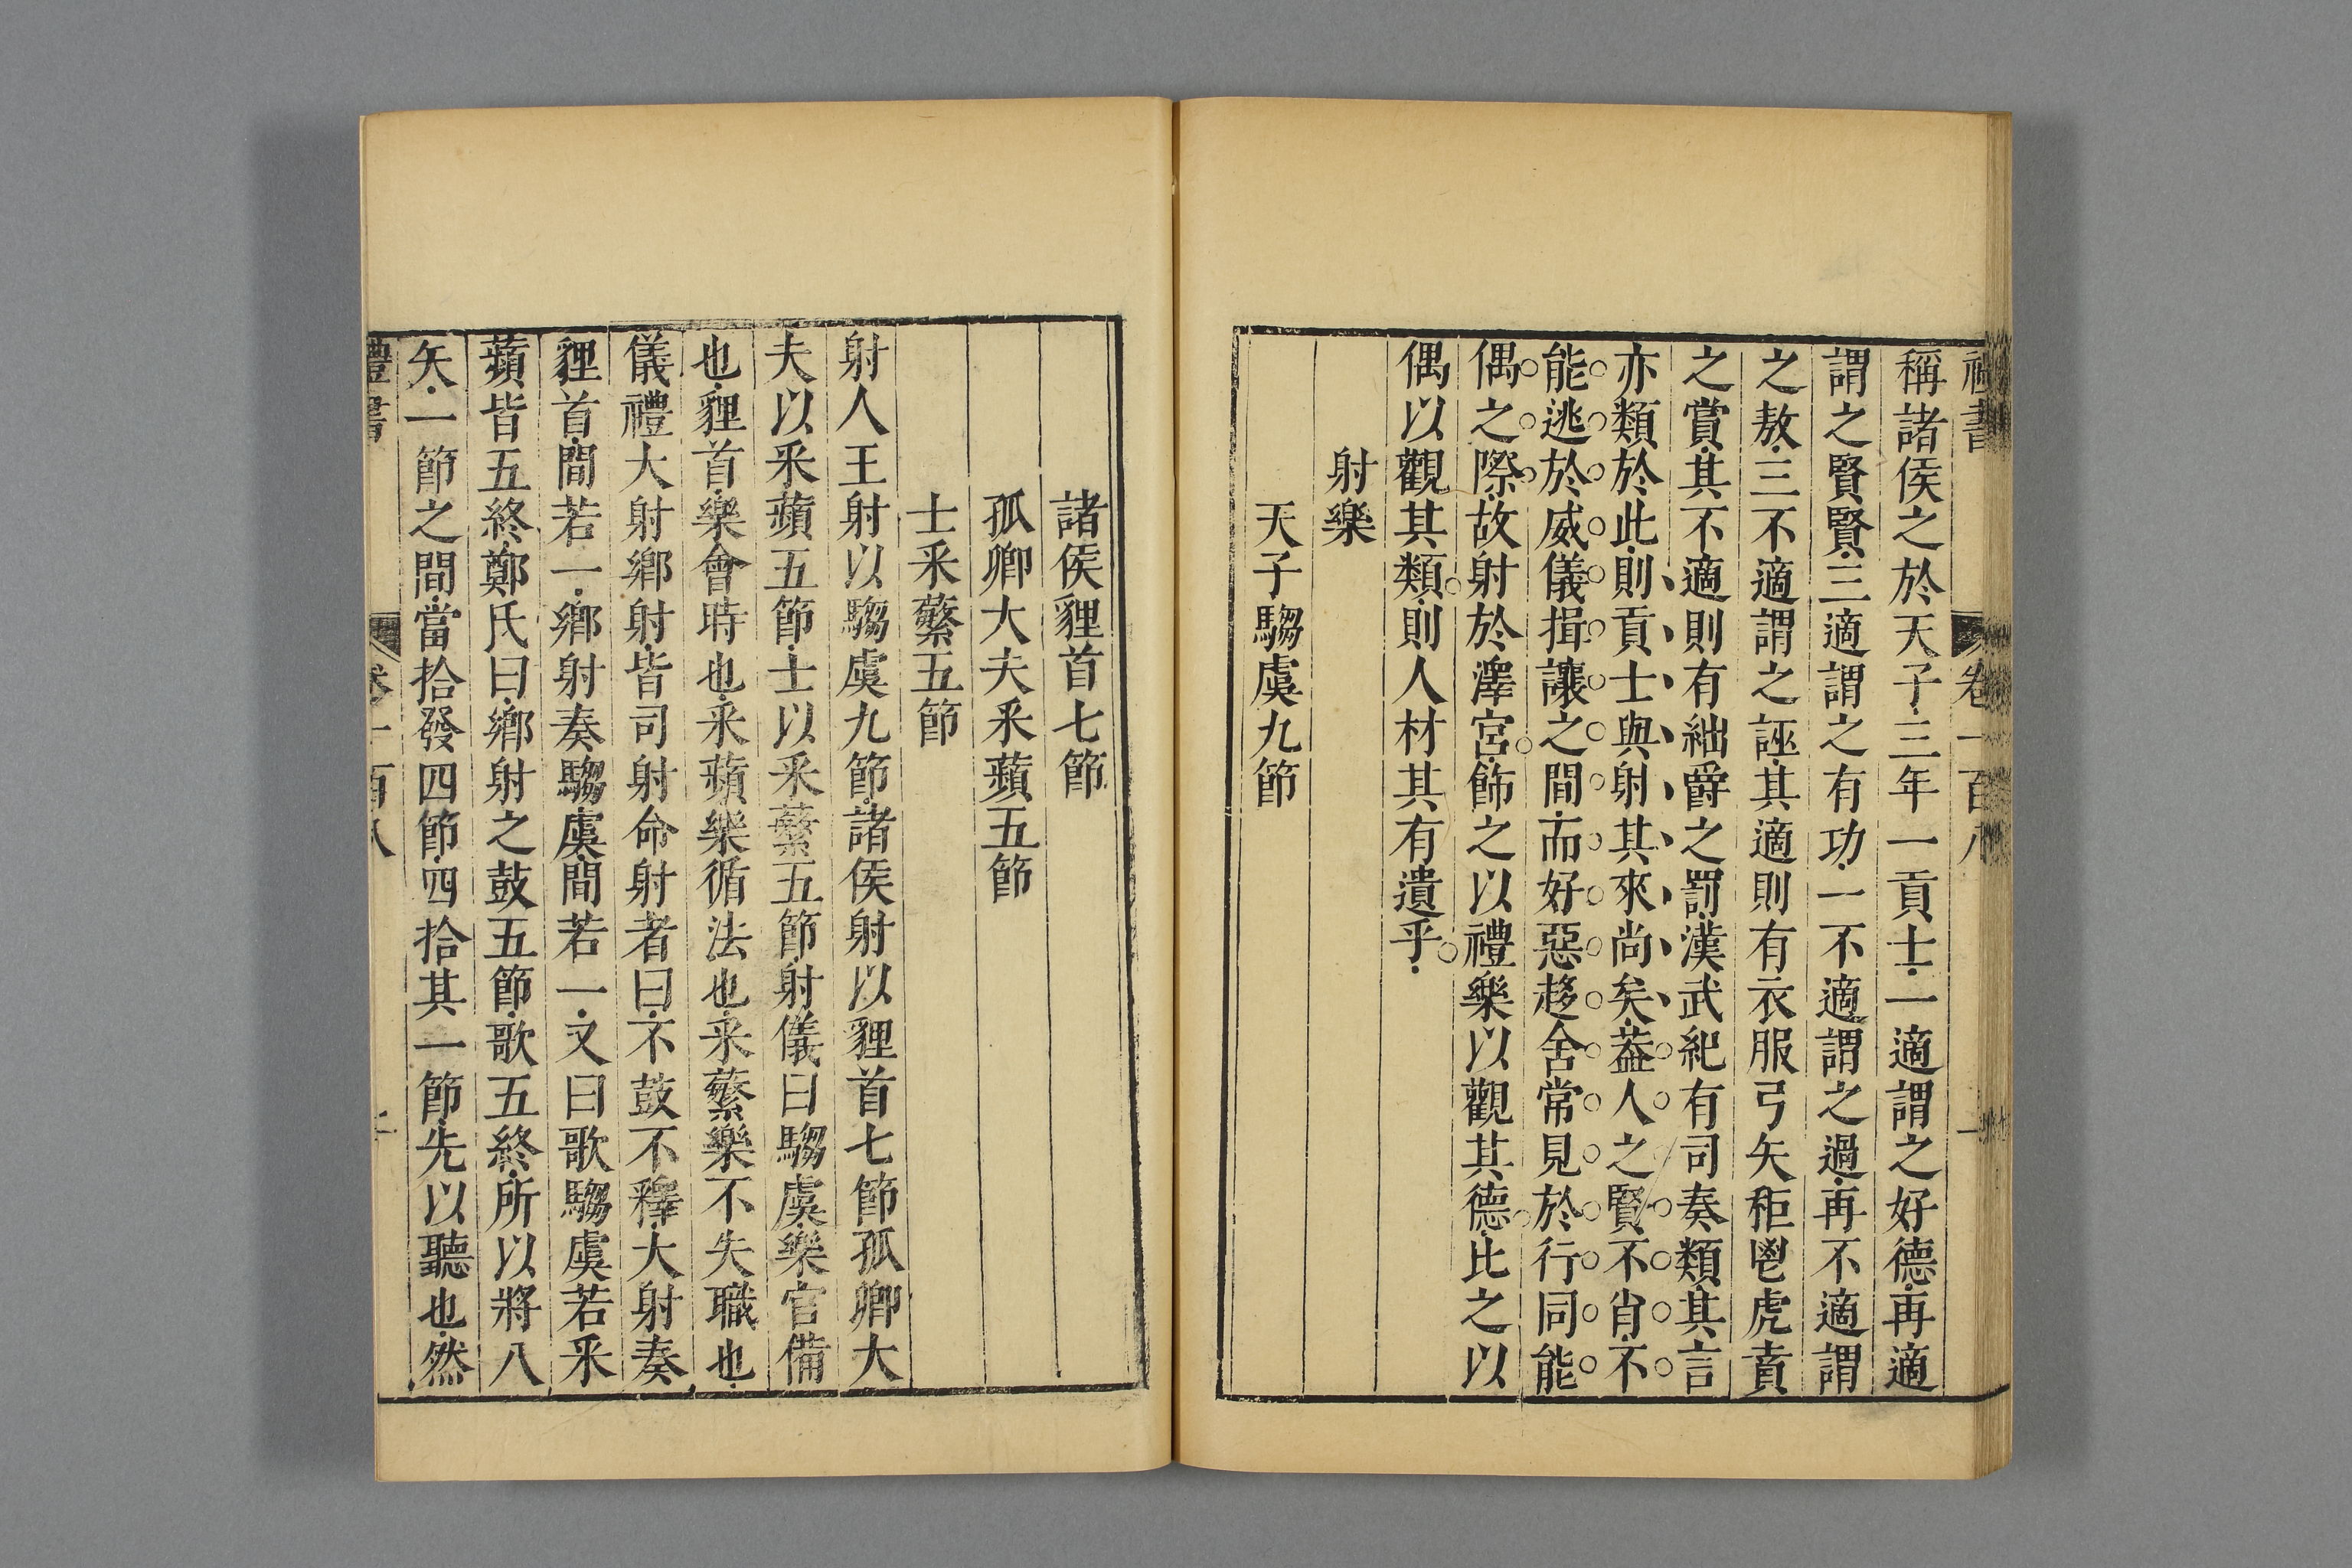 稱諸侯之於天子三年一貢士一適謂之好德再適
謂之賢賢三適謂之有功一不適謂之過再不適謂
之敖三不適謂之誣其適則有衣服弓矢秬鬯虎賁
之賞其不適則有絀爵之罰漢武紀有司奏類其言
亦類於此則貢士與射其來尚矣葢人之賢不肖不
能逃於威儀揖讓之間而好惡趍舍常見於行同能
偶之際故射於澤宮飾之以禮樂以觀其德比之以
偶以觀其類則人材其有遺乎
射樂
天子騶虞九節
諸侯貍首七節
孤卿大夫采蘋五節
士采蘩五節
射人王射以騶虞九節諸侯射以貍首七節孤卿大
夫以采蘋五節士以采蘩五節射儀曰騶虞樂官備
也貍首樂會時也采蘋樂循法也采蘩樂不失職也
儀禮大射鄉射皆司射命射者曰不鼓不釋大射奏
貍首間若一鄉射奏騶虞間若一又曰歌騶虞若采
蘋皆五終鄭氏曰鄉射之鼓五節歌五終所以將八
矢一節之間當拾發四節四拾其一節先以聽也然
禮書 卷一百八